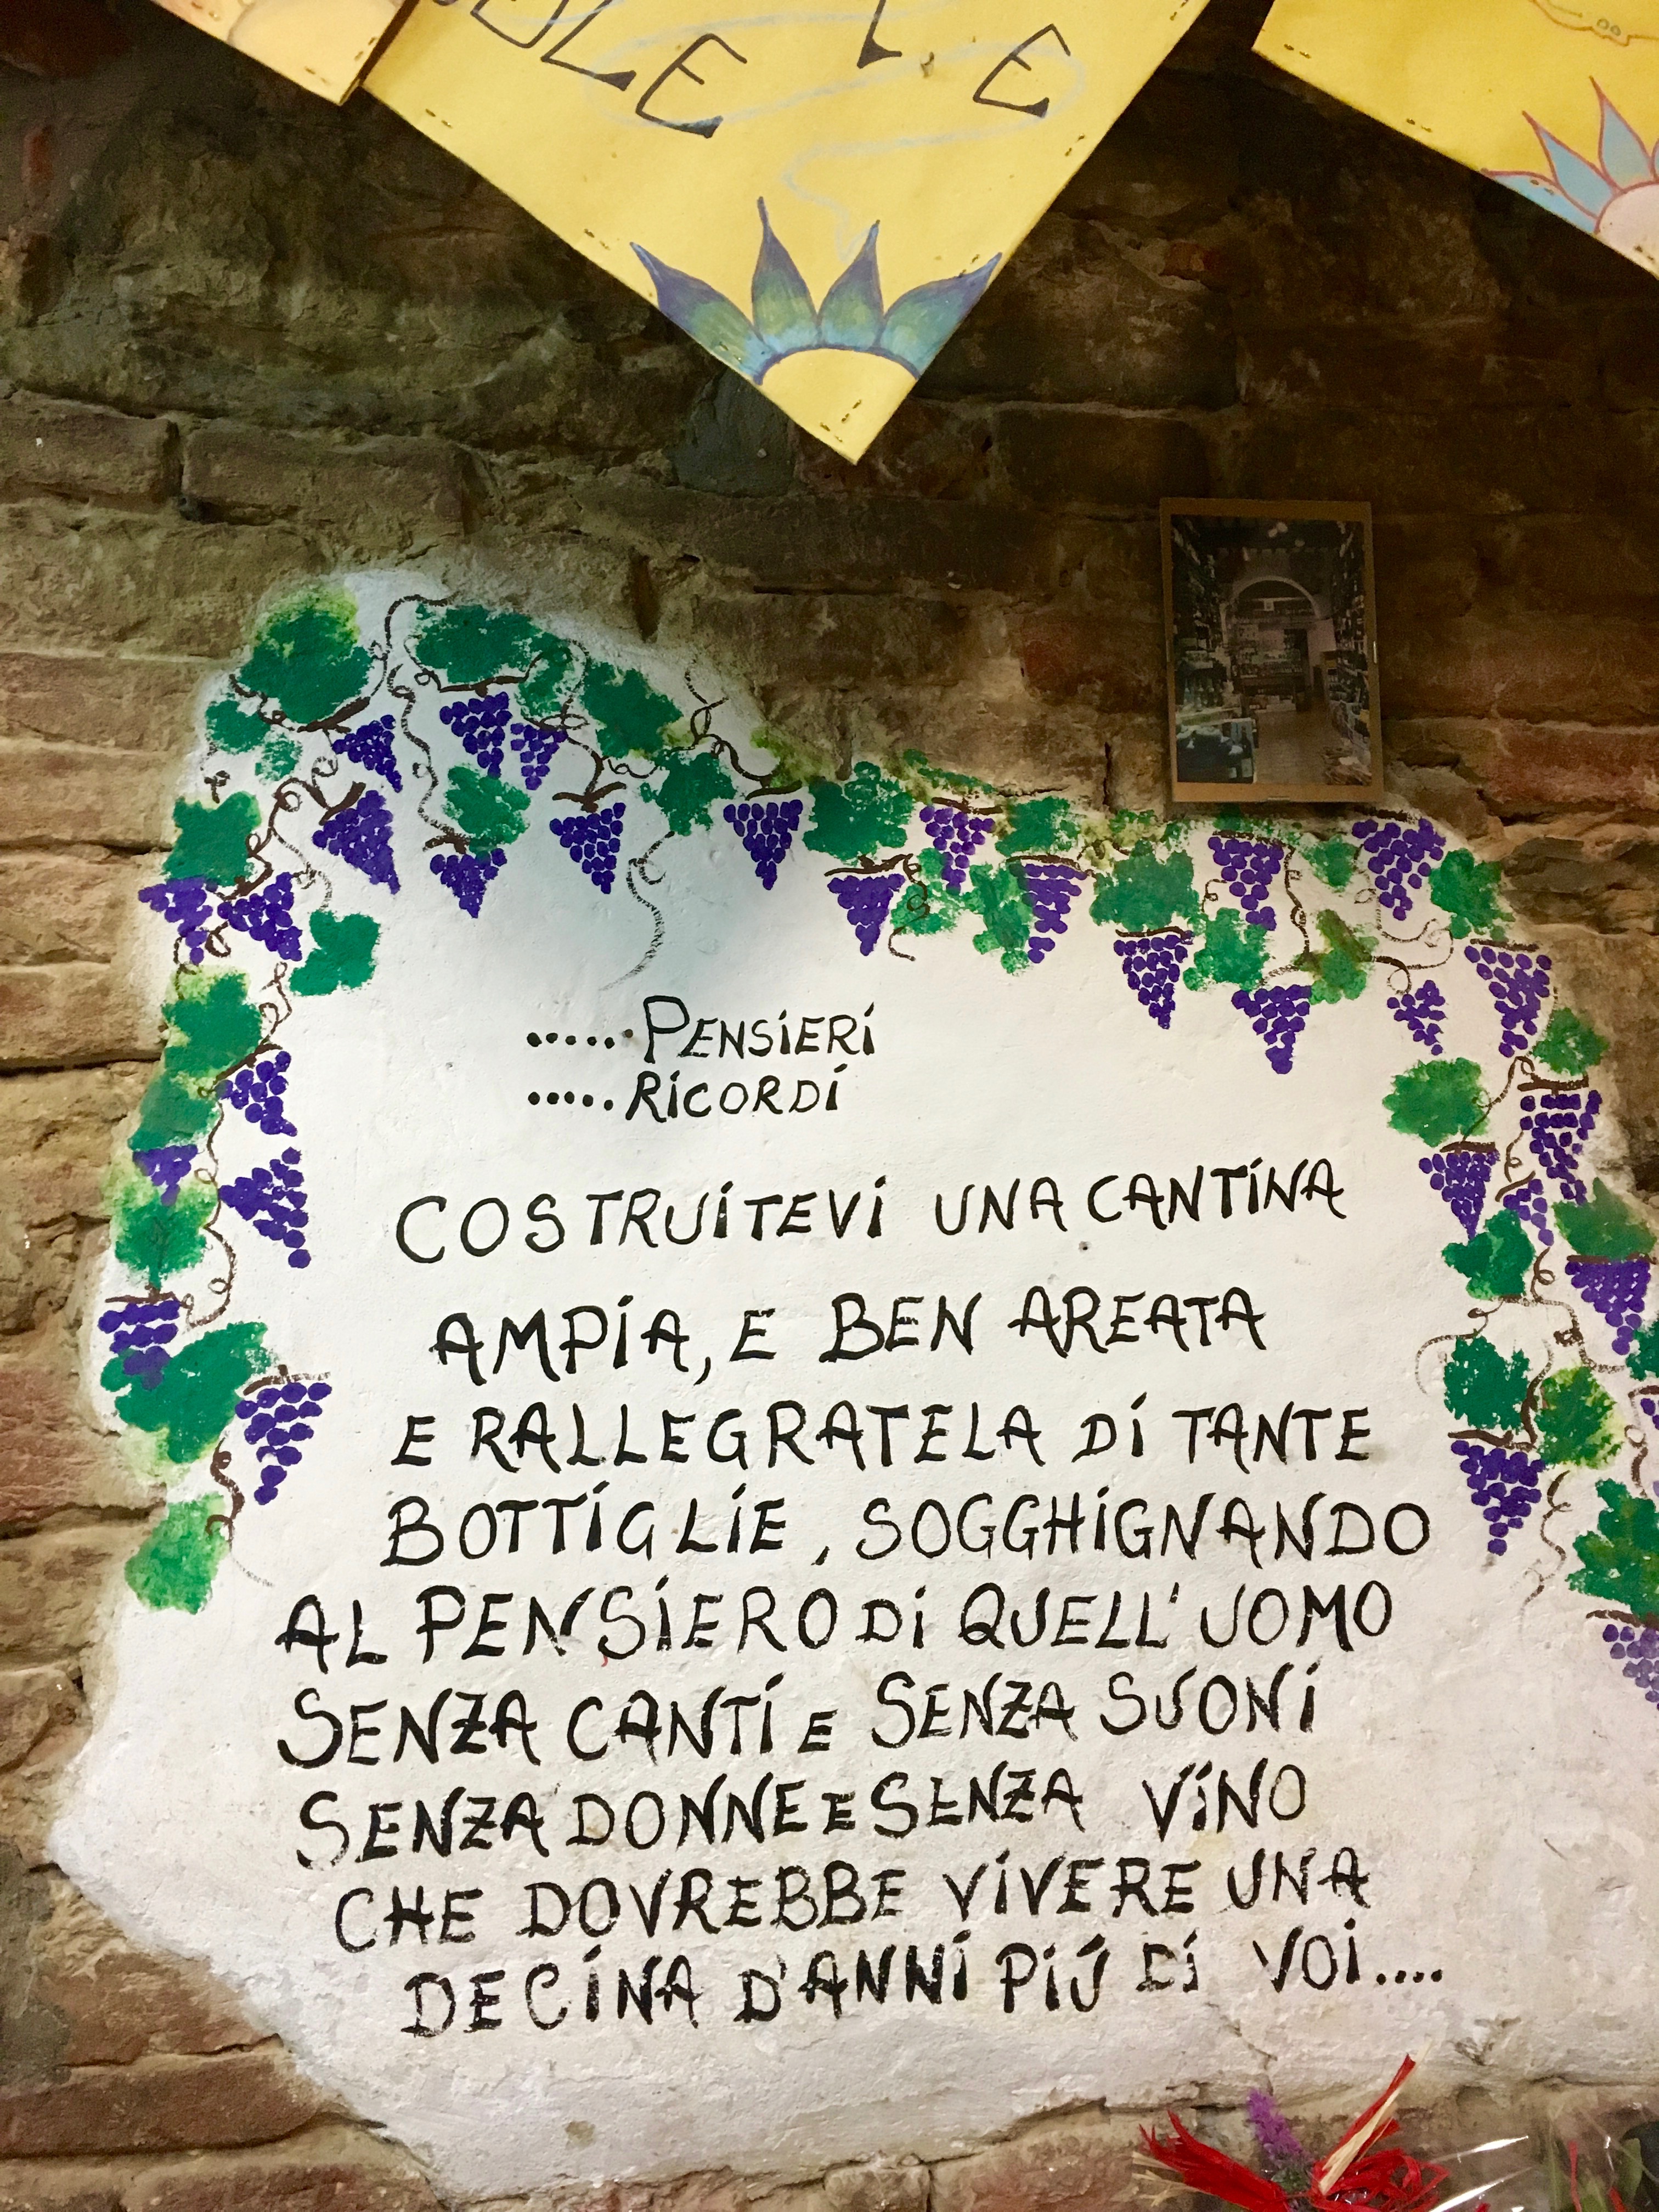 E
......PENSIERI
.....RICORDI
COSTRUITEVI UNA CANTINA
AMPIA, E BEN AREATA
E RALLEGRATELA DI TANTE
BOTTIGLIE, SOGGHIGNANDO
AL PENSIERO DI QUELL'UOMO
SENZA CANTI E SENZA SUONI
SENZA DONNE E SENZA VINO
CHE DOVREBBE VIVERE UNA
DECINA D'ANNI PIÚ DI VOI....